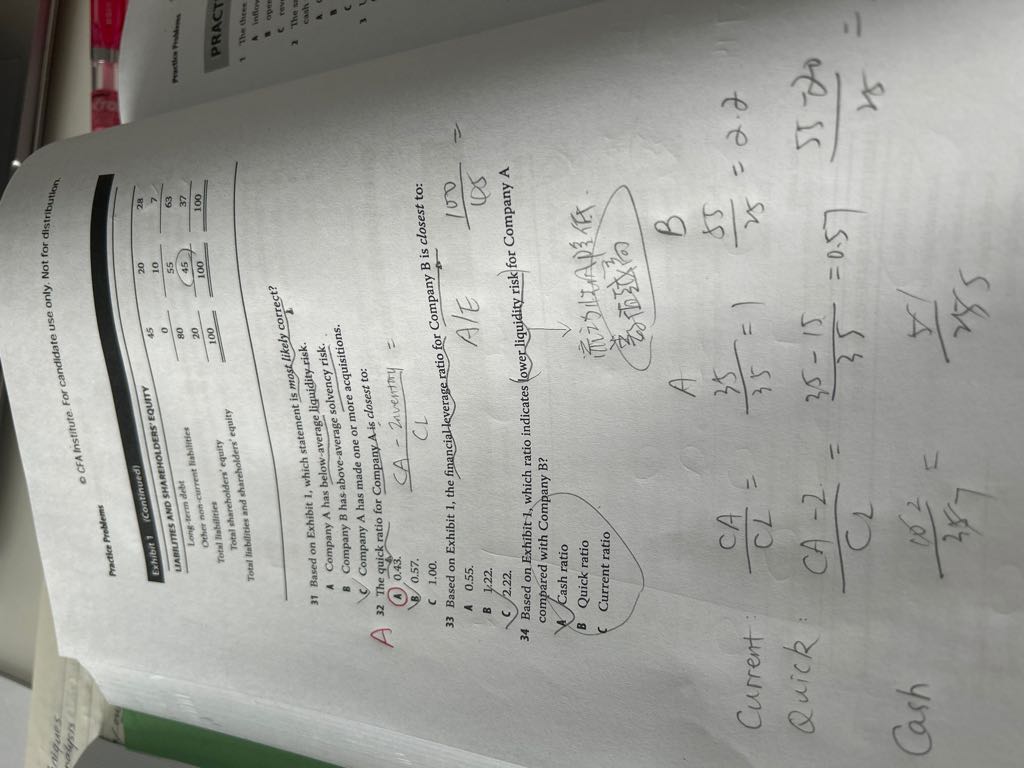 Practice Problems
© CFA Institute. For candidate use only. Not for distribution.
Exhibit 1 (Continued)
LIABILITIES AND SHAREHOLDERS' EQUITY
Long-term debt 45 20 28
Other non-current liabilities 0 10 7
Total liabilities 80 55 63
Total shareholders' equity 20 45 37
Total liabilities and shareholders' equity 100 100 100
31 Based on Exhibit 1, which statement is most likely correct?
A Company A has below-average liquidity risk.
B Company B has above-average solvency risk.
C Company A has made one or more acquisitions.
A 32 The quick ratio for Company A is closest to:
A 0.43.
B 0.57.
C 1.00.
CA - Inventory =
CL
33 Based on Exhibit 1, the financial leverage ratio for Company B is closest to:
A 0.55.
B 1.22.
C 2.22.
A/E
100
=
34 Based on Exhibit 1, which ratio indicates lower liquidity risk for Company A
compared with Company B?
A Cash ratio
B Quick ratio
C Current ratio
A B
Current: CA/CL = 35/35 = 1 55/25 = 2.2
Quick: CA-2/CL = 35-15/35 = 0.57 55-20/25 =
Cash
Practice Problems
PRACT
1 The three
2 The
cash